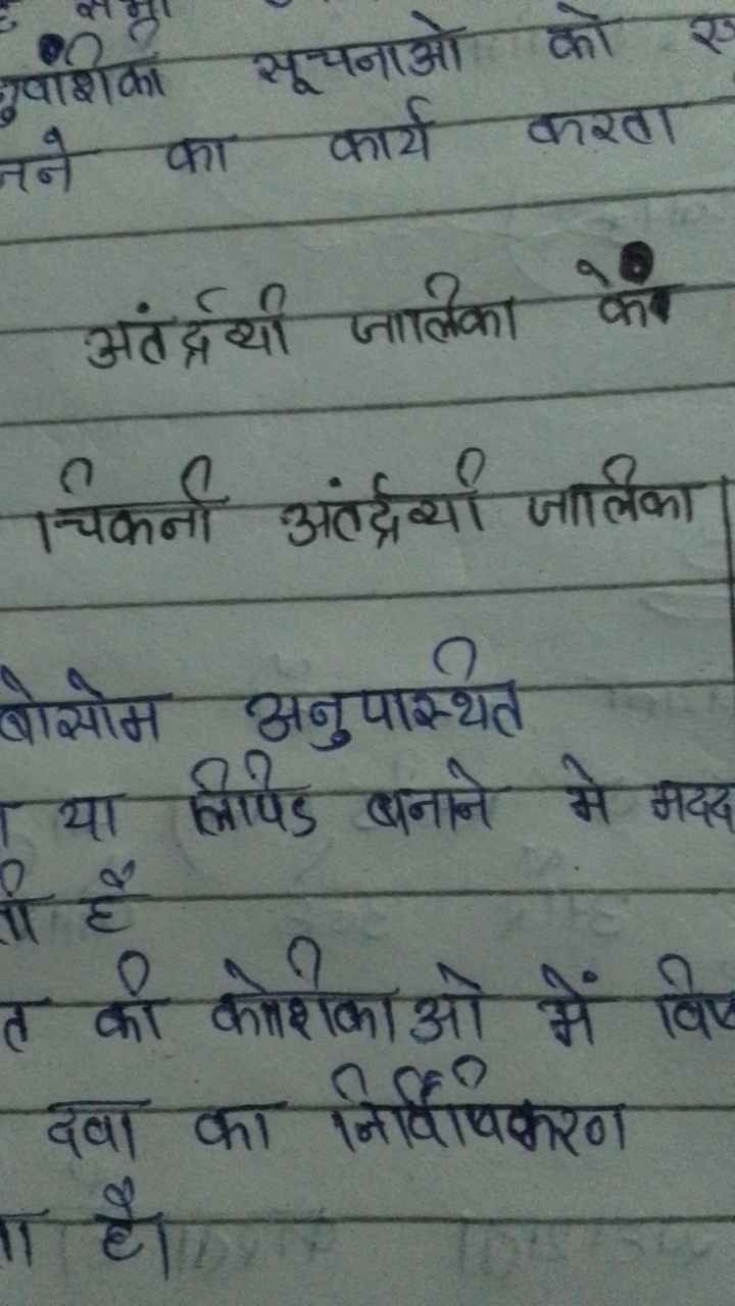 सूचनाओ को
का कार्य करता
अंतर्द्रव्यी जालिका के
चिकनी अंतर्द्रव्यी जालिका
अनुपास्थित
या लिपिड बनाने मे मदद
है
की कोशिकाओ में
दवा का निर्विषिकरण
है।